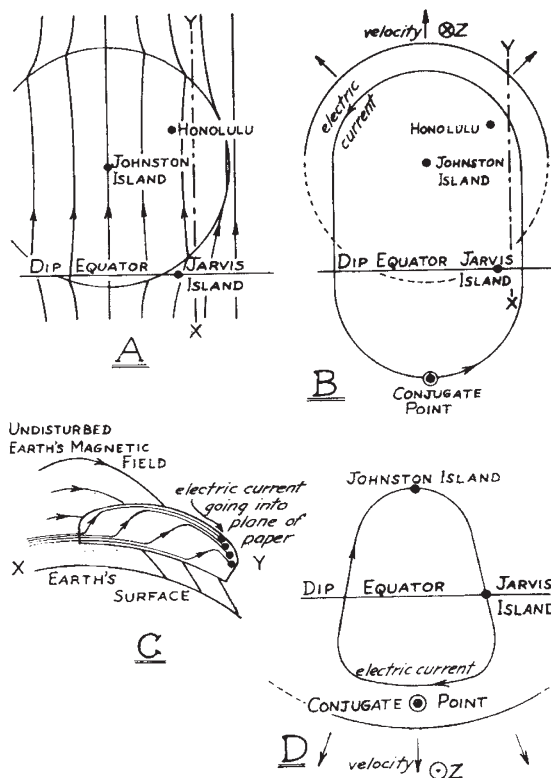 Y
HONOLULU
JOHNSTON
ISLAND
DIP EQUATOR
JARVIS
ISLAND
X
A
velocity
⊗Z
Y
electric
current
HONOLULU
JOHNSTON
ISLAND
DIP EQUATOR JARVIS
ISLAND
X
B
CONJUGATE
POINT
UNDISTURBED
EARTH'S MAGNETIC
FIELD
electric current
going into
plane of
paper
X
Y
EARTH'S
SURFACE
C
JOHNSTON ISLAND
DIP EQUATOR
JARVIS
ISLAND
electric current
CONJUGATE POINT
D
velocity
⊙Z